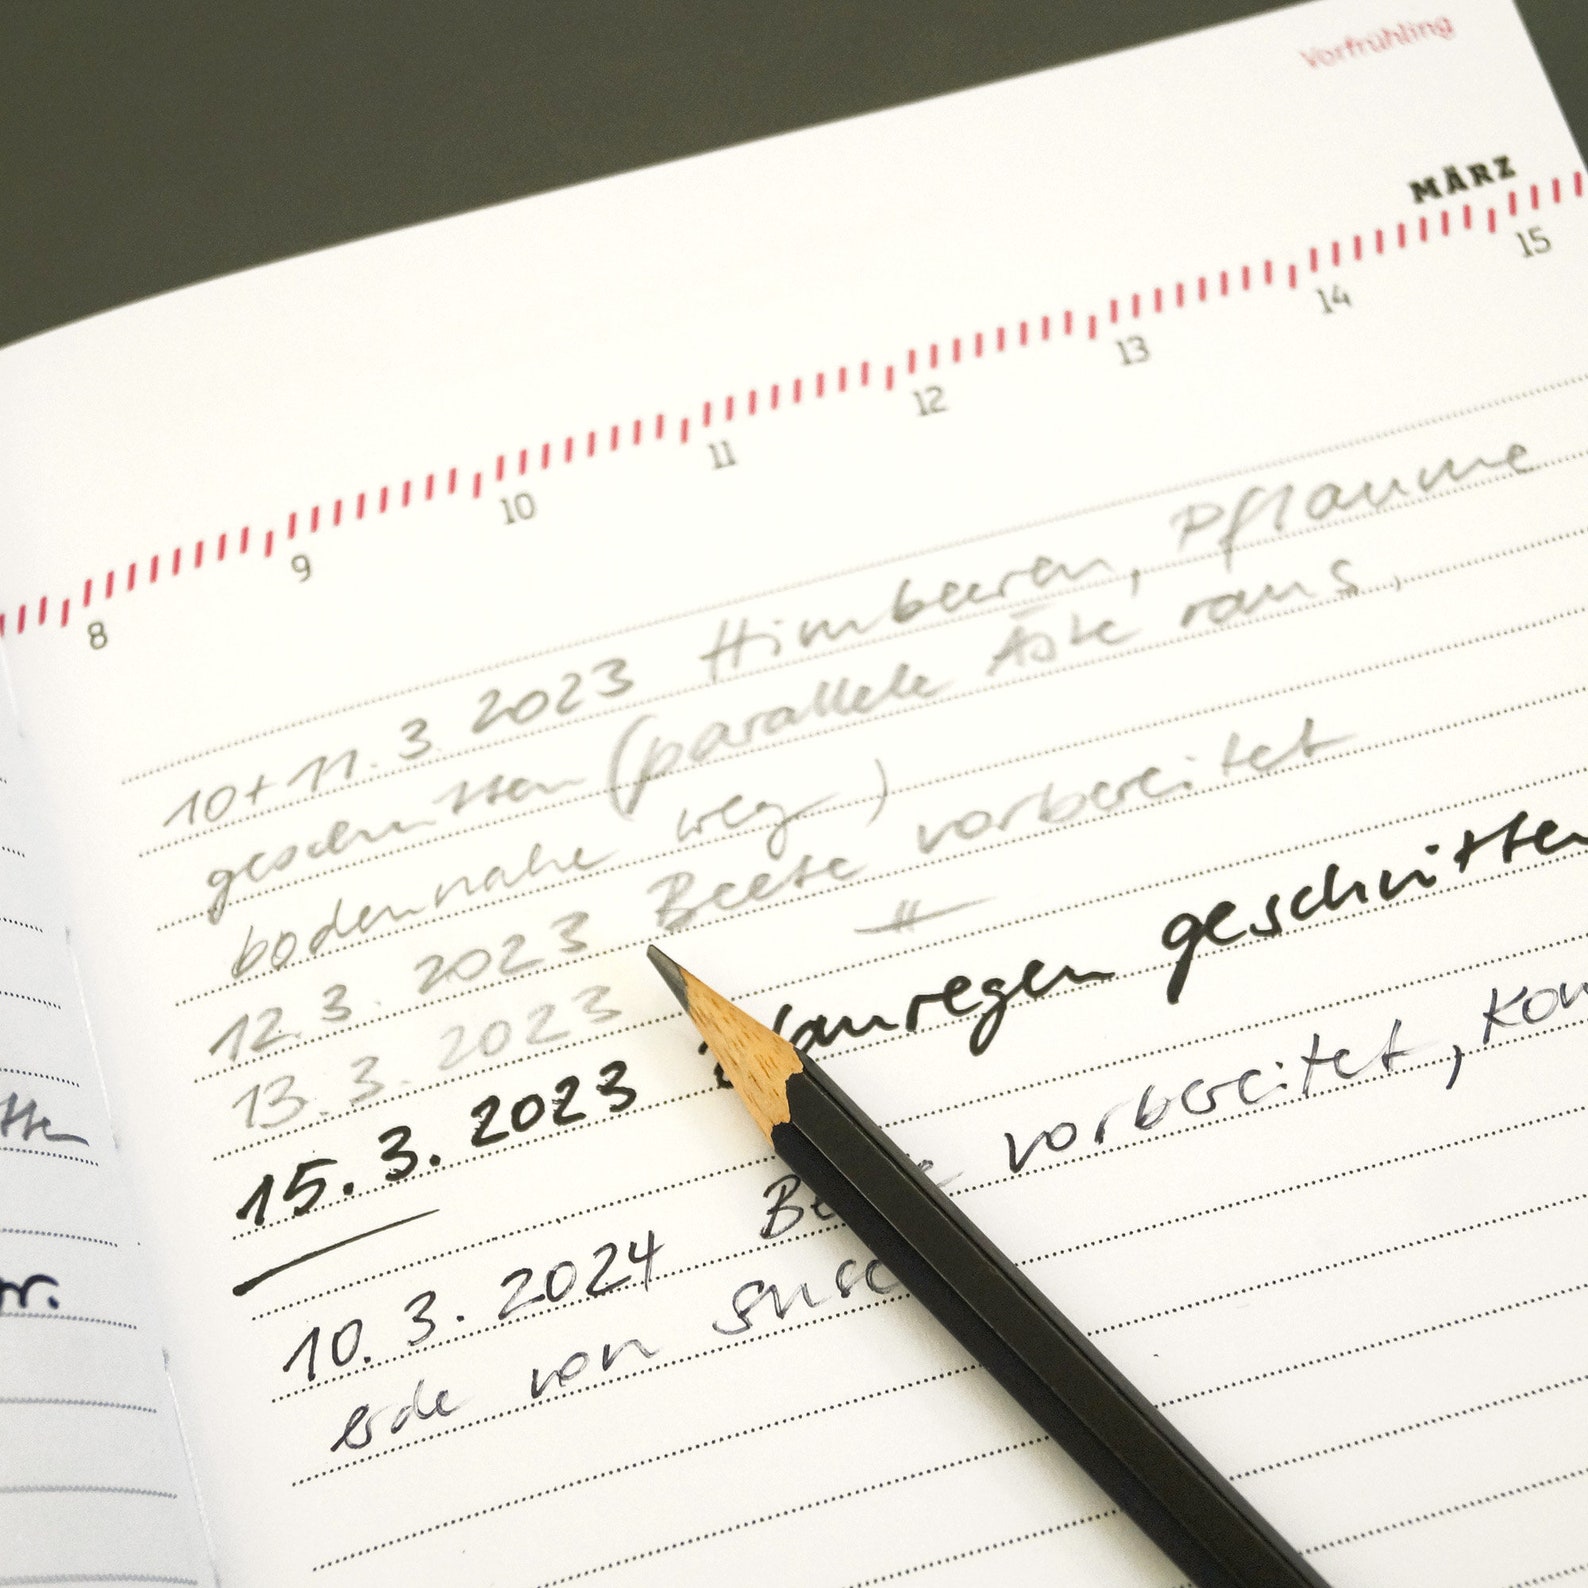 Vorfrühling
MÄRZ
8 9 10 11 12 13 14 15
10+11. 3. 2023 Himbeeren, Pflaume
geschnitten (parallele Äste raus,
bodennahe weg)
12. 3. 2023 Beete vorbereitet
13. 3. 2023 —〃—
15. 3. 2023 geschnitten
10. 3. 2024 vorbereitet,
erde von